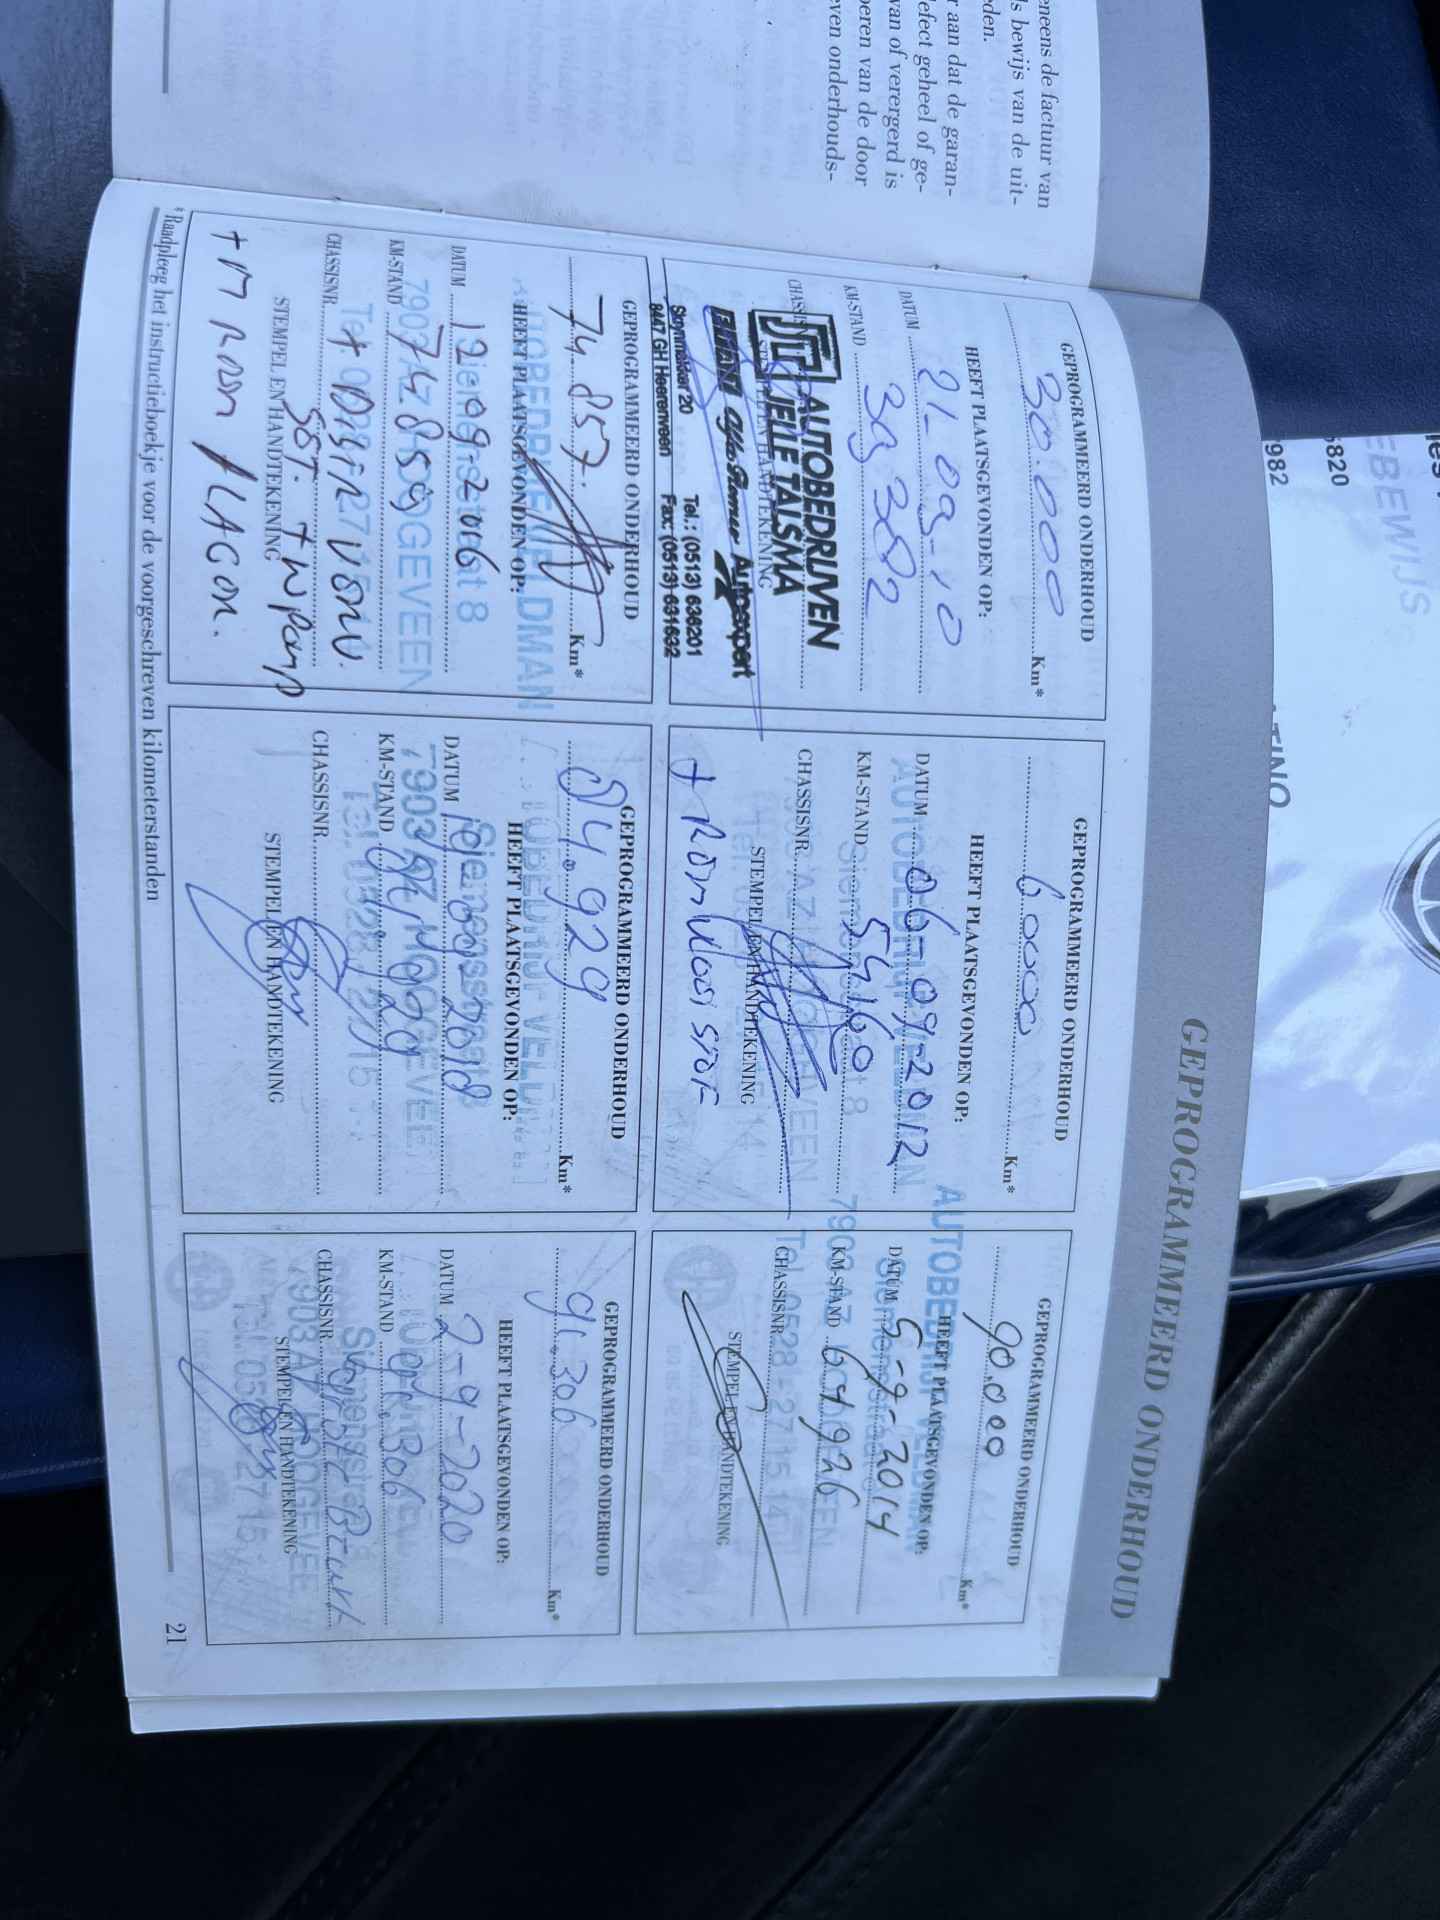 eneens de factuur van
ls bewijs van de uit-
eden.
r aan dat de garan-
efect geheel of ge-
van of verergerd is
eren van de door
even onderhouds-
GEPROGRAMMEERD ONDERHOUD
GEPROGRAMMEERD ONDERHOUD
30.000 Km*
HEEFT PLAATSGEVONDEN OP:
DATUM 21-09-10
KM-STAND 39382
CHASSISNR.
STEMPEL EN HANDTEKENING
AUTOBEDRIJVEN
JELLE TALSMA
Alfa Romeo Autoexpert
Skrynmakker 20 Tel.: (0513) 636201
8447 GH Heerenveen Fax: (0513) 631632
GEPROGRAMMEERD ONDERHOUD
60000 Km*
HEEFT PLAATSGEVONDEN OP:
DATUM 06-09-2012
KM-STAND 54160
CHASSISNR.
STEMPEL EN HANDTEKENING
+ Remvloeistof
AUTOBEDRIJF VELDMAN
Siemensstraat 8
7903 AZ HOOGEVEEN
GEPROGRAMMEERD ONDERHOUD
90.000 Km*
HEEFT PLAATSGEVONDEN OP:
DATUM 5-9-2014
KM-STAND 64926
CHASSISNR.
STEMPEL EN HANDTEKENING
AUTOBEDRIJF VELDMAN
Siemensstraat 8
7903 AZ HOOGEVEEN
Tel. 0528-27 15 14
GEPROGRAMMEERD ONDERHOUD
74.857. Km*
HEEFT PLAATSGEVONDEN OP:
DATUM 12-09-2016
KM-STAND 74859
CHASSISNR. + Distr Verv.
set. + W Pomp
STEMPEL EN HANDTEKENING
AUTOBEDRIJF VELDMAN
Siemensstraat 8
7903 AZ HOOGEVEEN
GEPROGRAMMEERD ONDERHOUD
84.929 Km*
HEEFT PLAATSGEVONDEN OP:
DATUM
KM-STAND
CHASSISNR.
STEMPEL EN HANDTEKENING
AUTOBEDRIJF VELDMAN
Siemensstraat 8
7903 AZ HOOGEVEEN
GEPROGRAMMEERD ONDERHOUD
91.306 Km*
HEEFT PLAATSGEVONDEN OP:
DATUM 2-9-2020
KM-STAND 91.306
CHASSISNR.
STEMPEL EN HANDTEKENING
Siemensstraat 8
* Raadpleeg het instructieboekje voor de voorgeschreven kilometerstanden
21
EBEWIJS
5820
982